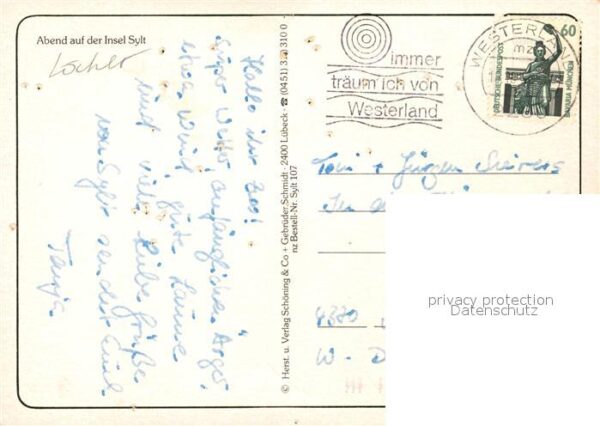 Abend auf der Insel Sylt
Locher
Hallo ihr Zwei!
Super Wetter, anfänglicher Ärger,
etwas Wind, gute Laune
und viele liebe Grüße
von Sylt sendet Euch
Tanja
© Herst. u. Verlag Schöning & Co + Gebrüder Schmidt · 2400 Lübeck · ☎ (0451) 3 10 310 0
nz Bestell-Nr. Sylt 107
immer
träum ich von
Westerland
WESTERLAND
mz
60
DEUTSCHE BUNDESPOST
BAVARIA MÜNCHEN
Toni + Jürgen Sievers
In
W-
privacy protection
Datenschutz